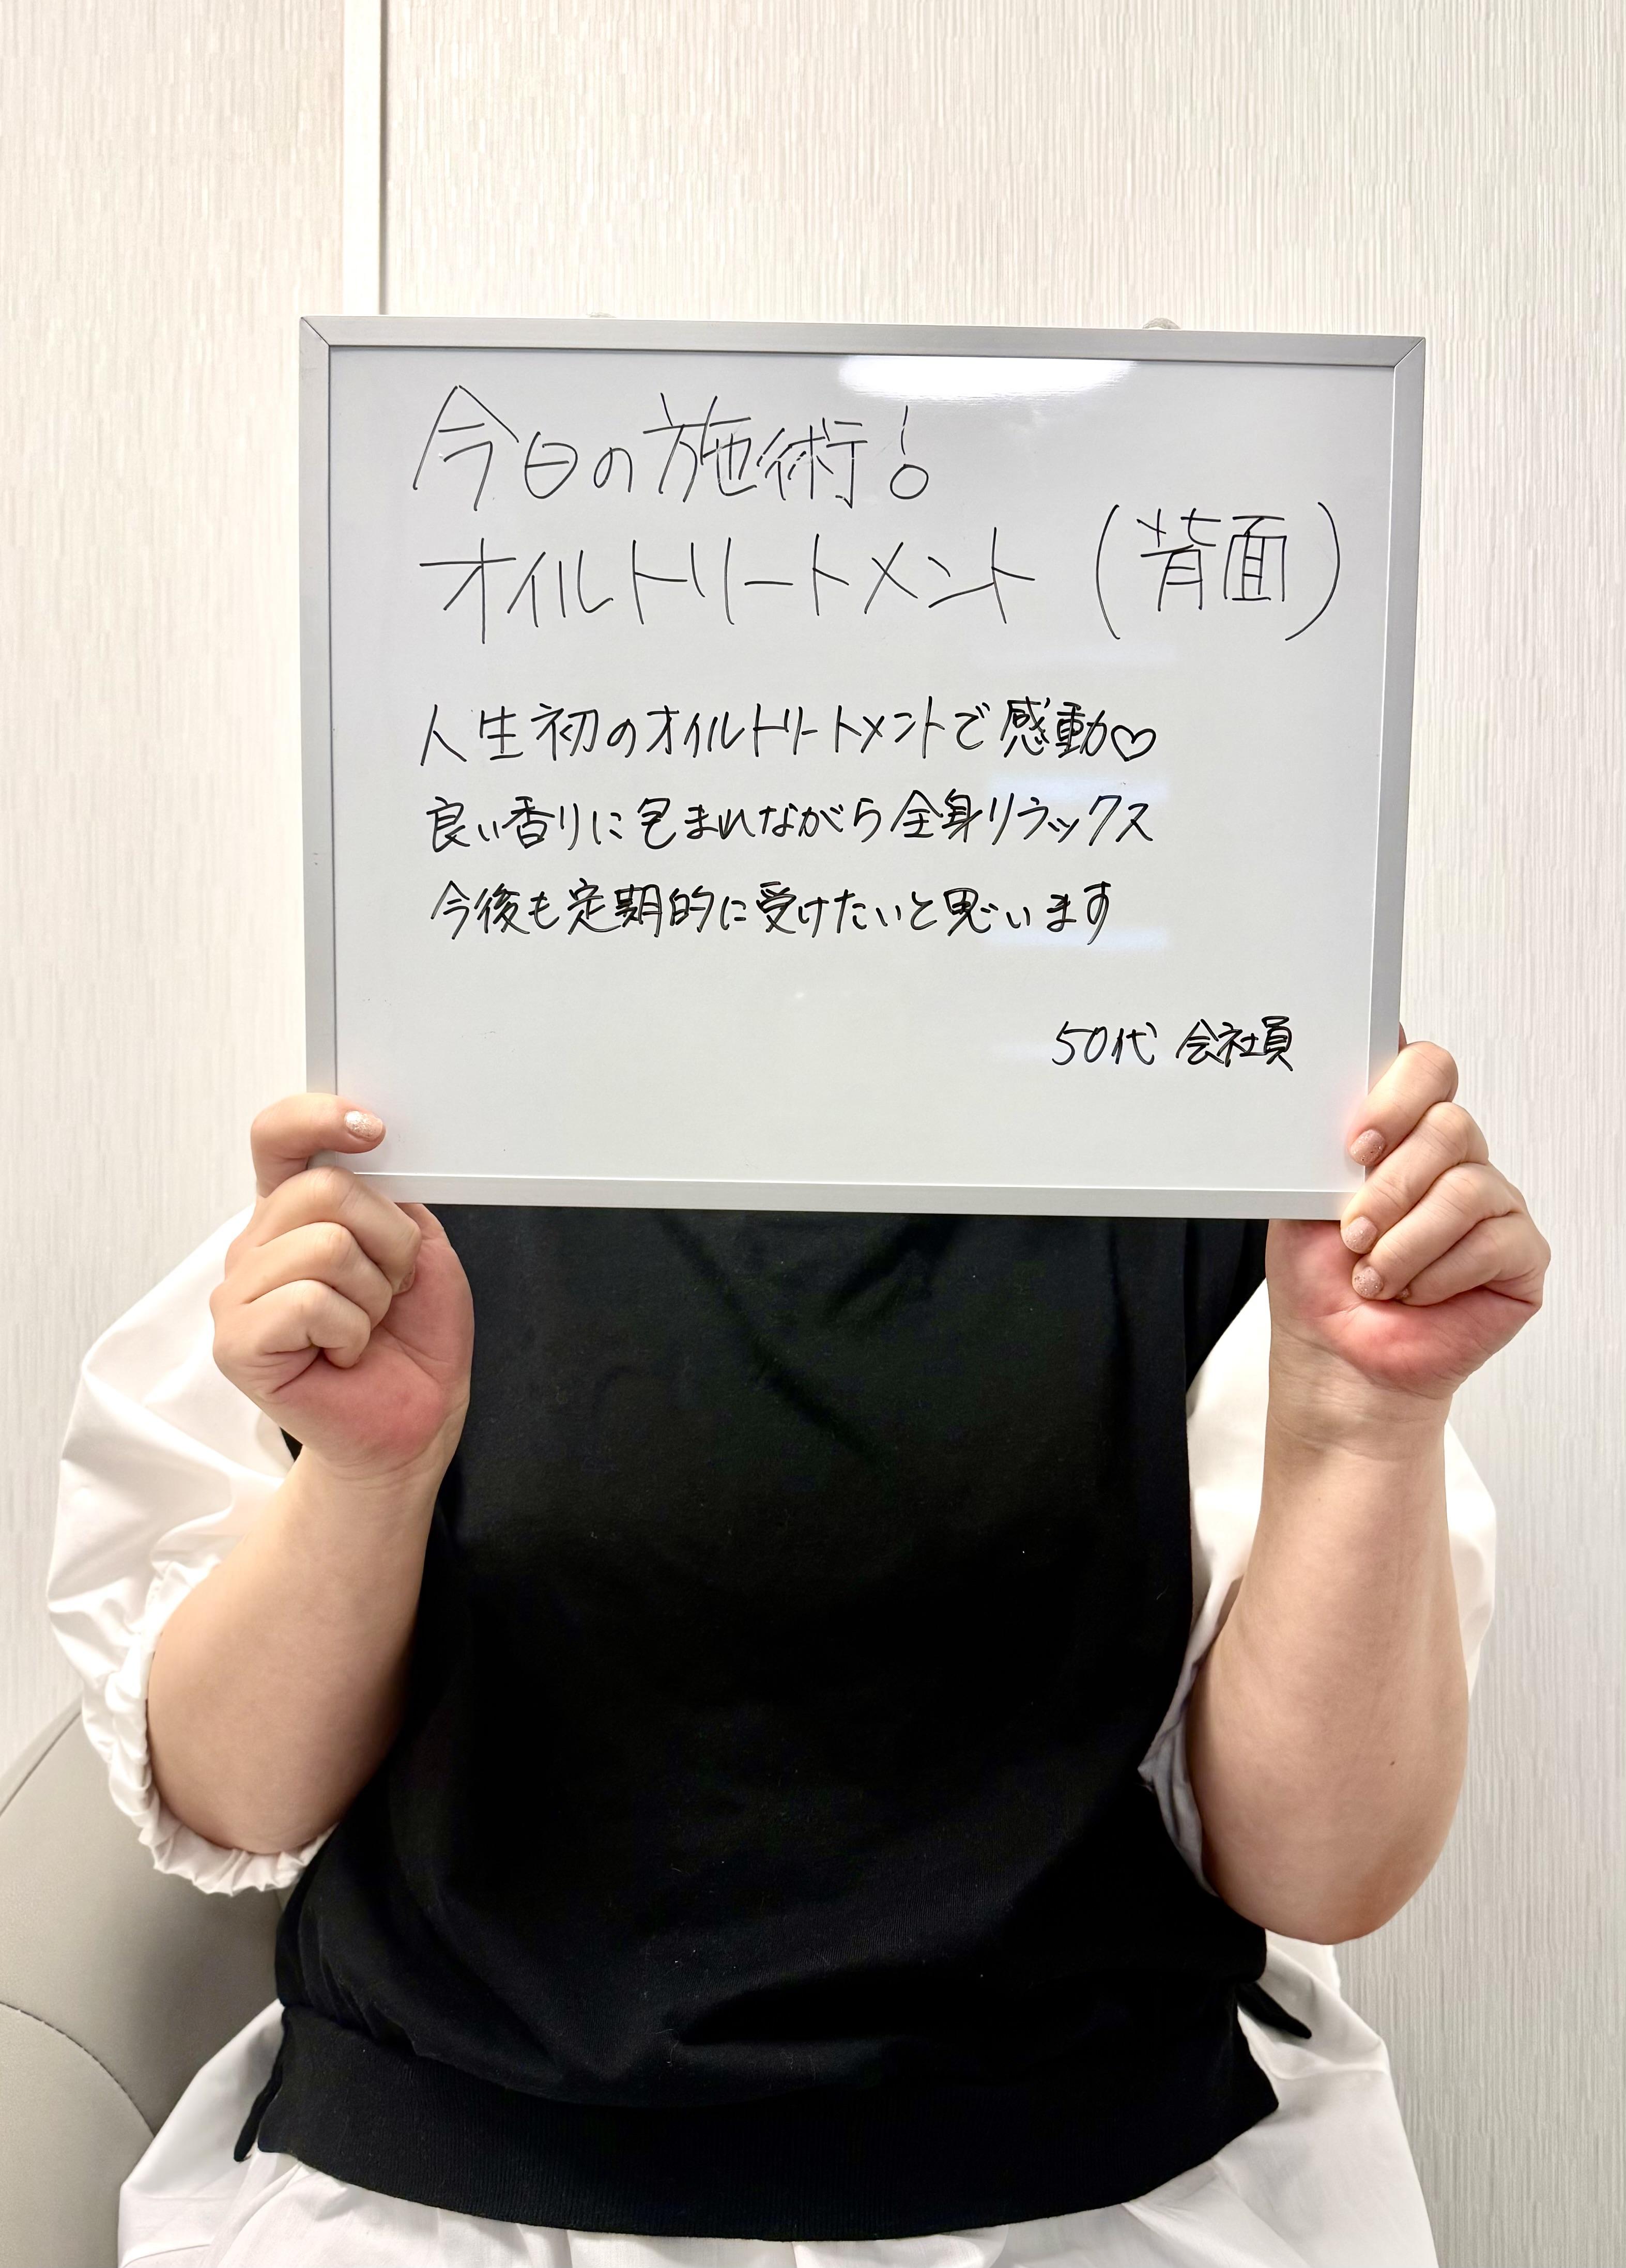 今日の施術！
オイルトリートメント（背面）
人生初のオイルトリートメントで感動♡
良い香りに包まれながら全身リラックス
今後も定期的に受けたいと思います
50代 会社員